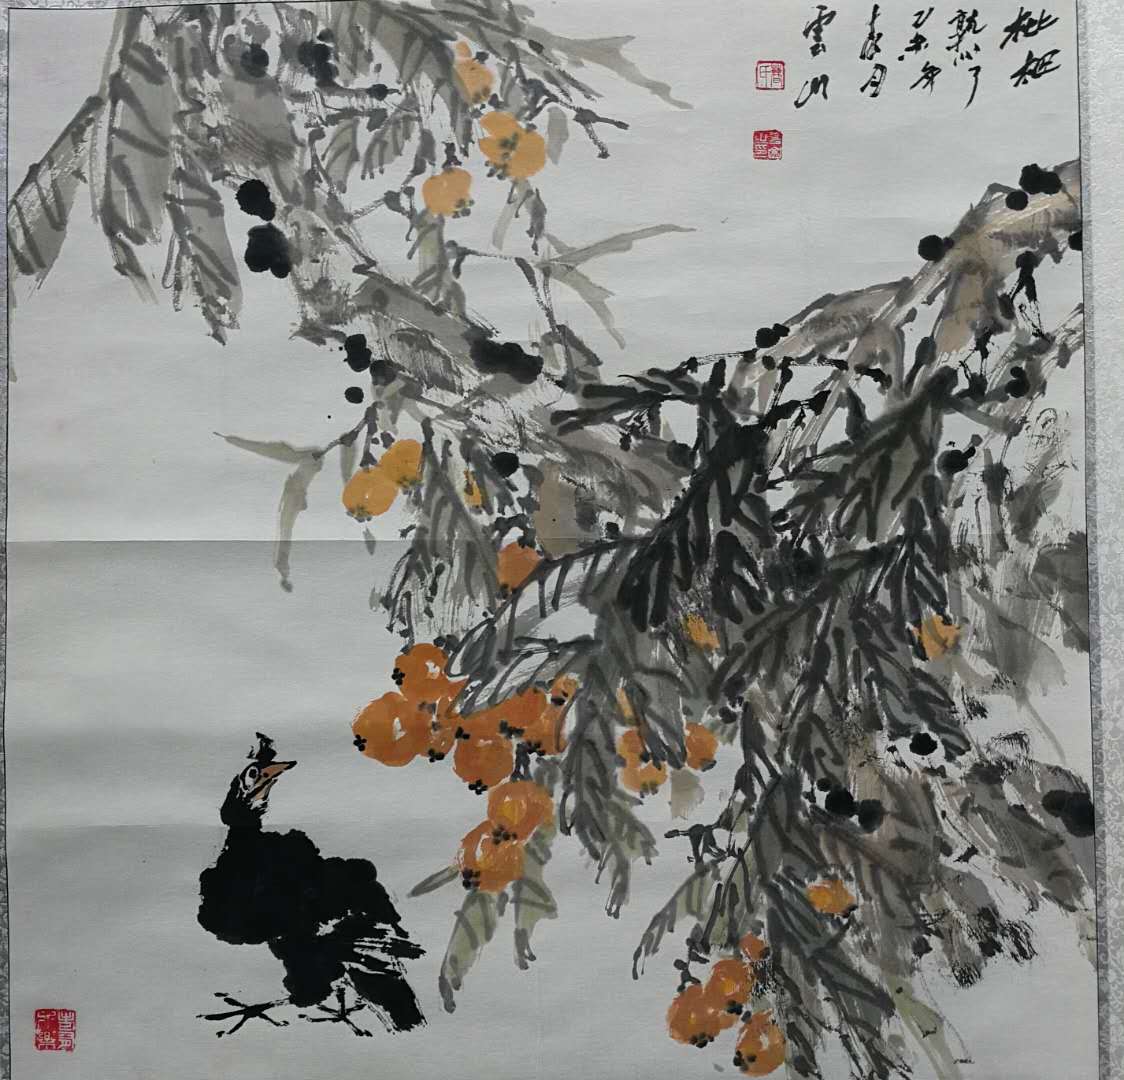 枇杷
熟了
乙未年
春月
雲川